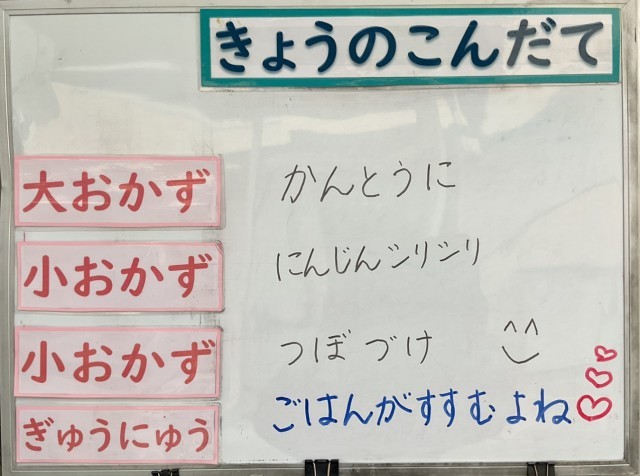 きょうのこんだて
大おかず かんとうに
小おかず にんじんシリシリ
小おかず つぼづけ ^^
ぎゅうにゅう ごはんがすすむよね♡♡♡